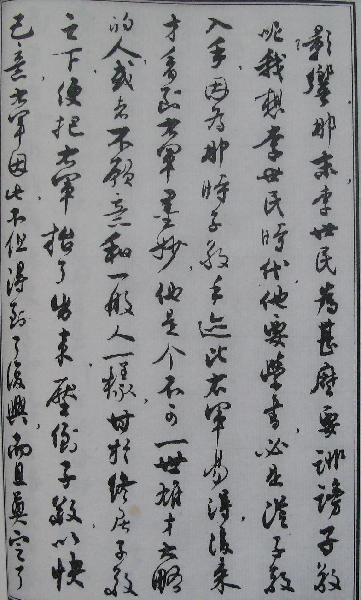 影響那末李世民為甚麼要誹謗子敬
呢我想李世民時代他要學書必是從子敬
入手因為那時子敬手迹比右軍易得後來
才看到右軍墨妙他是个不可一世雄才大略
的人或者不願意和一般人一樣甘於終居子敬
之下便把右軍抬了出來壓倒子敬以快
己意右軍因此不但得到了復興而且奠定了